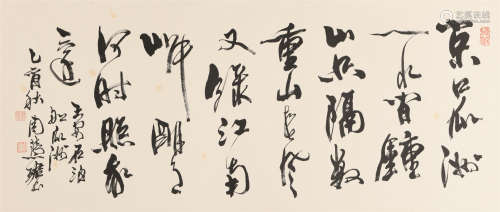 京口瓜洲
一水間鍾
山只隔數
重山春風
又綠江南
岸明月
何時照我
還
王安石泊
船瓜洲
乙酉秋周慧珺書